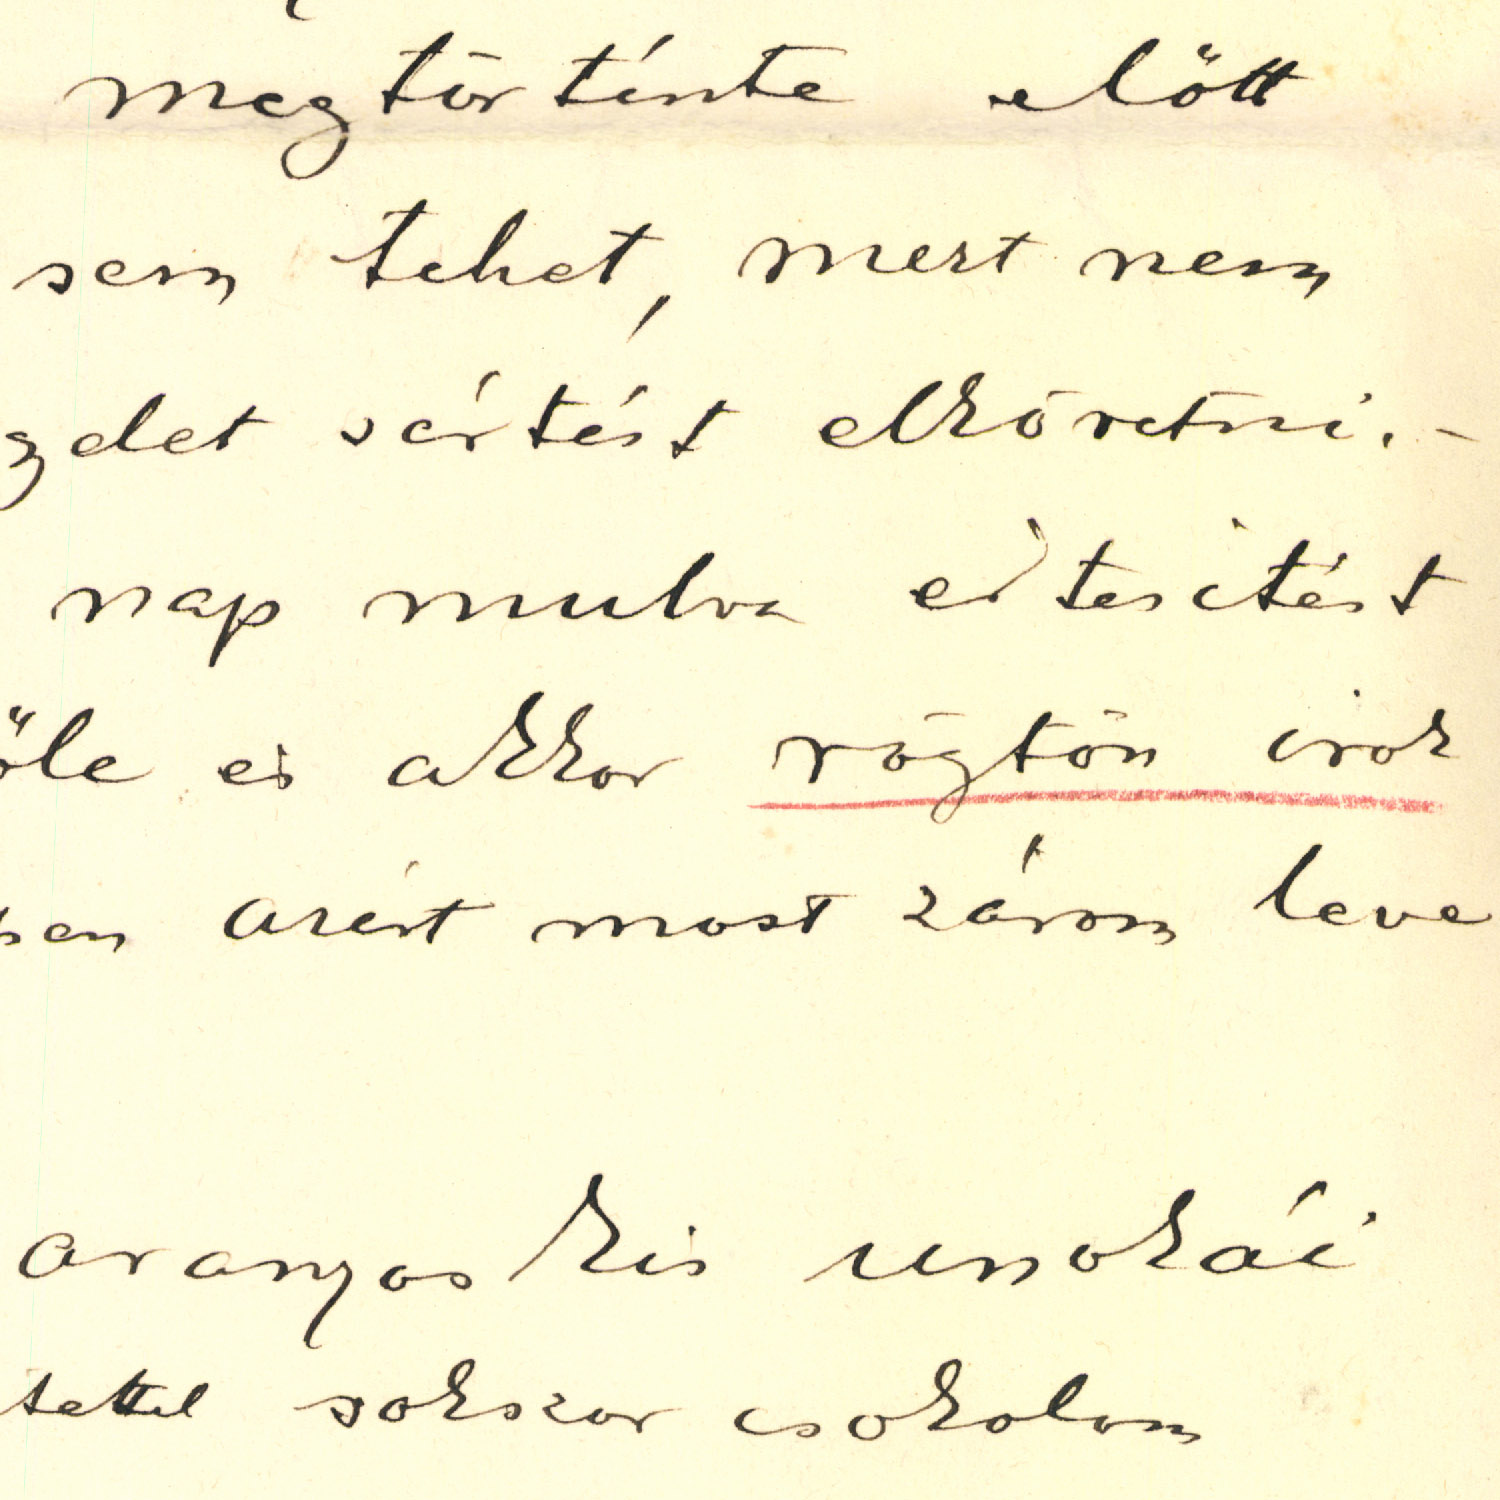 megtörténte előtt
sem tehet, mert nem
gzelet sértést elkövetni.-
nap mulva értesitést
őle és akkor rögtön irok
pen azért most zárom leve
aranyos kis unokái
tettel sokszor csokolom